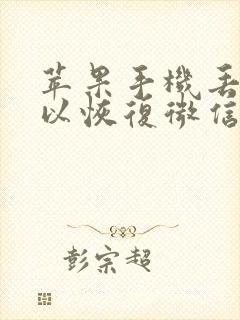 苹果手機丢
以恢復微信
彭宗超